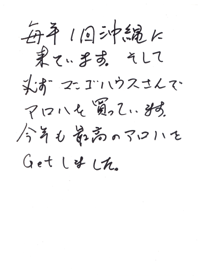 毎年1回沖縄に
来ています。そして
必ずマンゴハウスさんで
アロハを買っています。
今年も最高のアロハを
Getしました。